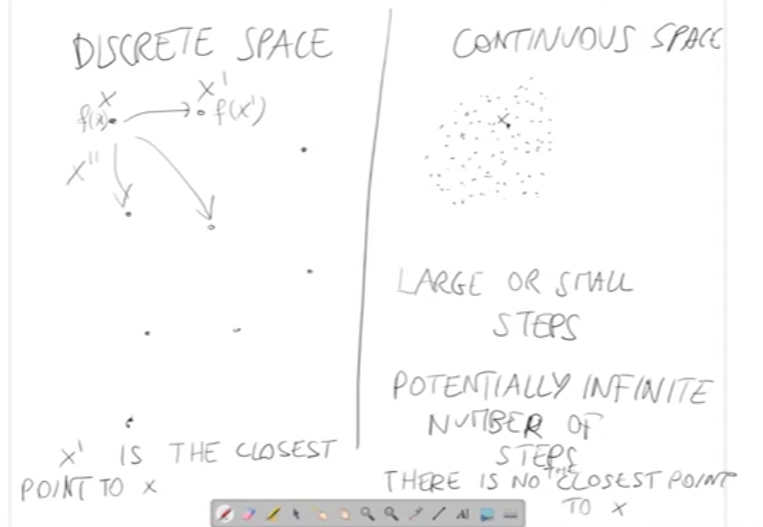 DISCRETE SPACE
X
f(x)
X'
f(x')
X''
X' IS THE CLOSEST
POINT TO X
CONTINUOUS SPACE
X
LARGE OR SMALL
STEPS
POTENTIALLY INFINITE
NUMBER OF
STEPS
THERE IS NO THE CLOSEST POINT
TO X
AI